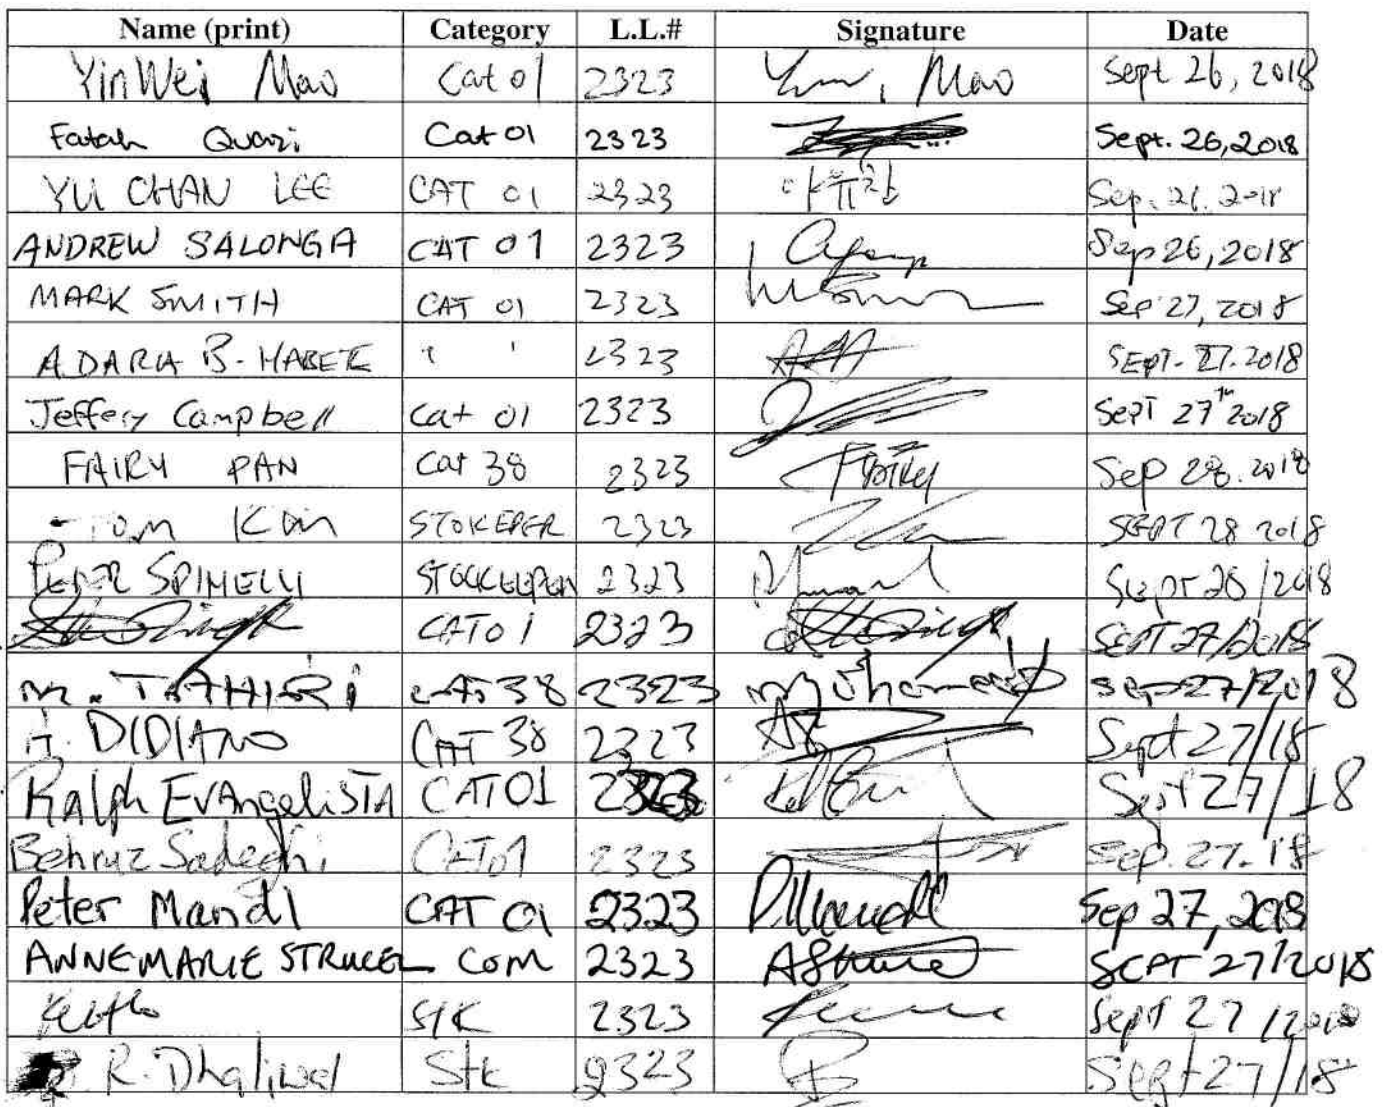 Name (print) Category L.L.# Signature Date
YinWei Mao Cat 01 2323 Mao Sept 26, 2018
Fatah Quazi Cat 01 2323 Sept. 26, 2018
YU CHAN LEE CAT 01 2323 Sep. 26. 2018
ANDREW SALONGA CAT 01 2323 Sep 26, 2018
MARK SMITH CAT 01 2323 Sep 27, 2018
ADARA B. 2323 SEPT. 27. 2018
Jeffery Campbell Cat 01 2323 Sept 27th 2018
FAIRY PAN Cat 38 2323 Fairy Sep 28. 2018
TOM KIM 2323 SEPT 28 2018
PETER SPINELLI 2323 Sept 28/2018
CAT01 2323 SEPT 27/2018
M. TAHIRI CAT 38 2323 Mohamed Sep 27/2018
DIDIANO CAT 38 2323 Sept 27/18
Ralph EvAngeliSTA CAT 01 2323 Sept 27/18
Behruz Sadeghi CAT01 2323 Sep. 27. 18
Peter Mandl CAT 01 2323 Sep 27, 2018
ANNEMARIE COM 2323 SEPT 27/2018
STK 2323 Sept 27/2018
R. Dhaliwal Stk 2323 Sept 27/18